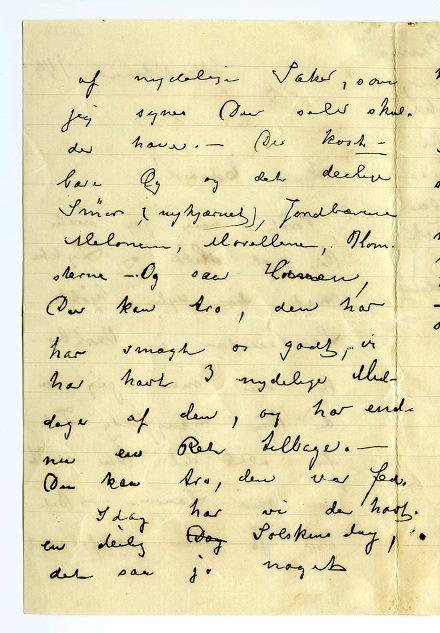 af nydelige Sæker, som
jeg synes Du selv skul-
de have. — De kost-
bare Æg og det deilige
Smör, (nykjærnet), Jordbærrene
Melonen, Morellerne, Blom-
sterne — Og saa Hönen,
Du kan tro, den har
har smagt os godt, vi
har havt 3 nydelige Mid-
dage af den, og har end-
nu en Rest tilbage. —
Du kan tro, den var fed.
Idag har vi da havt
en deilig Dag Solskinsdag,
det saa jo noget